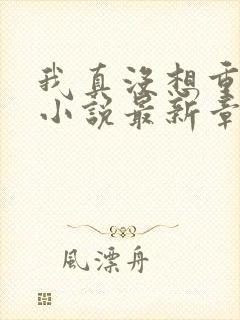 我真沒想重
小說最新章
風漂舟